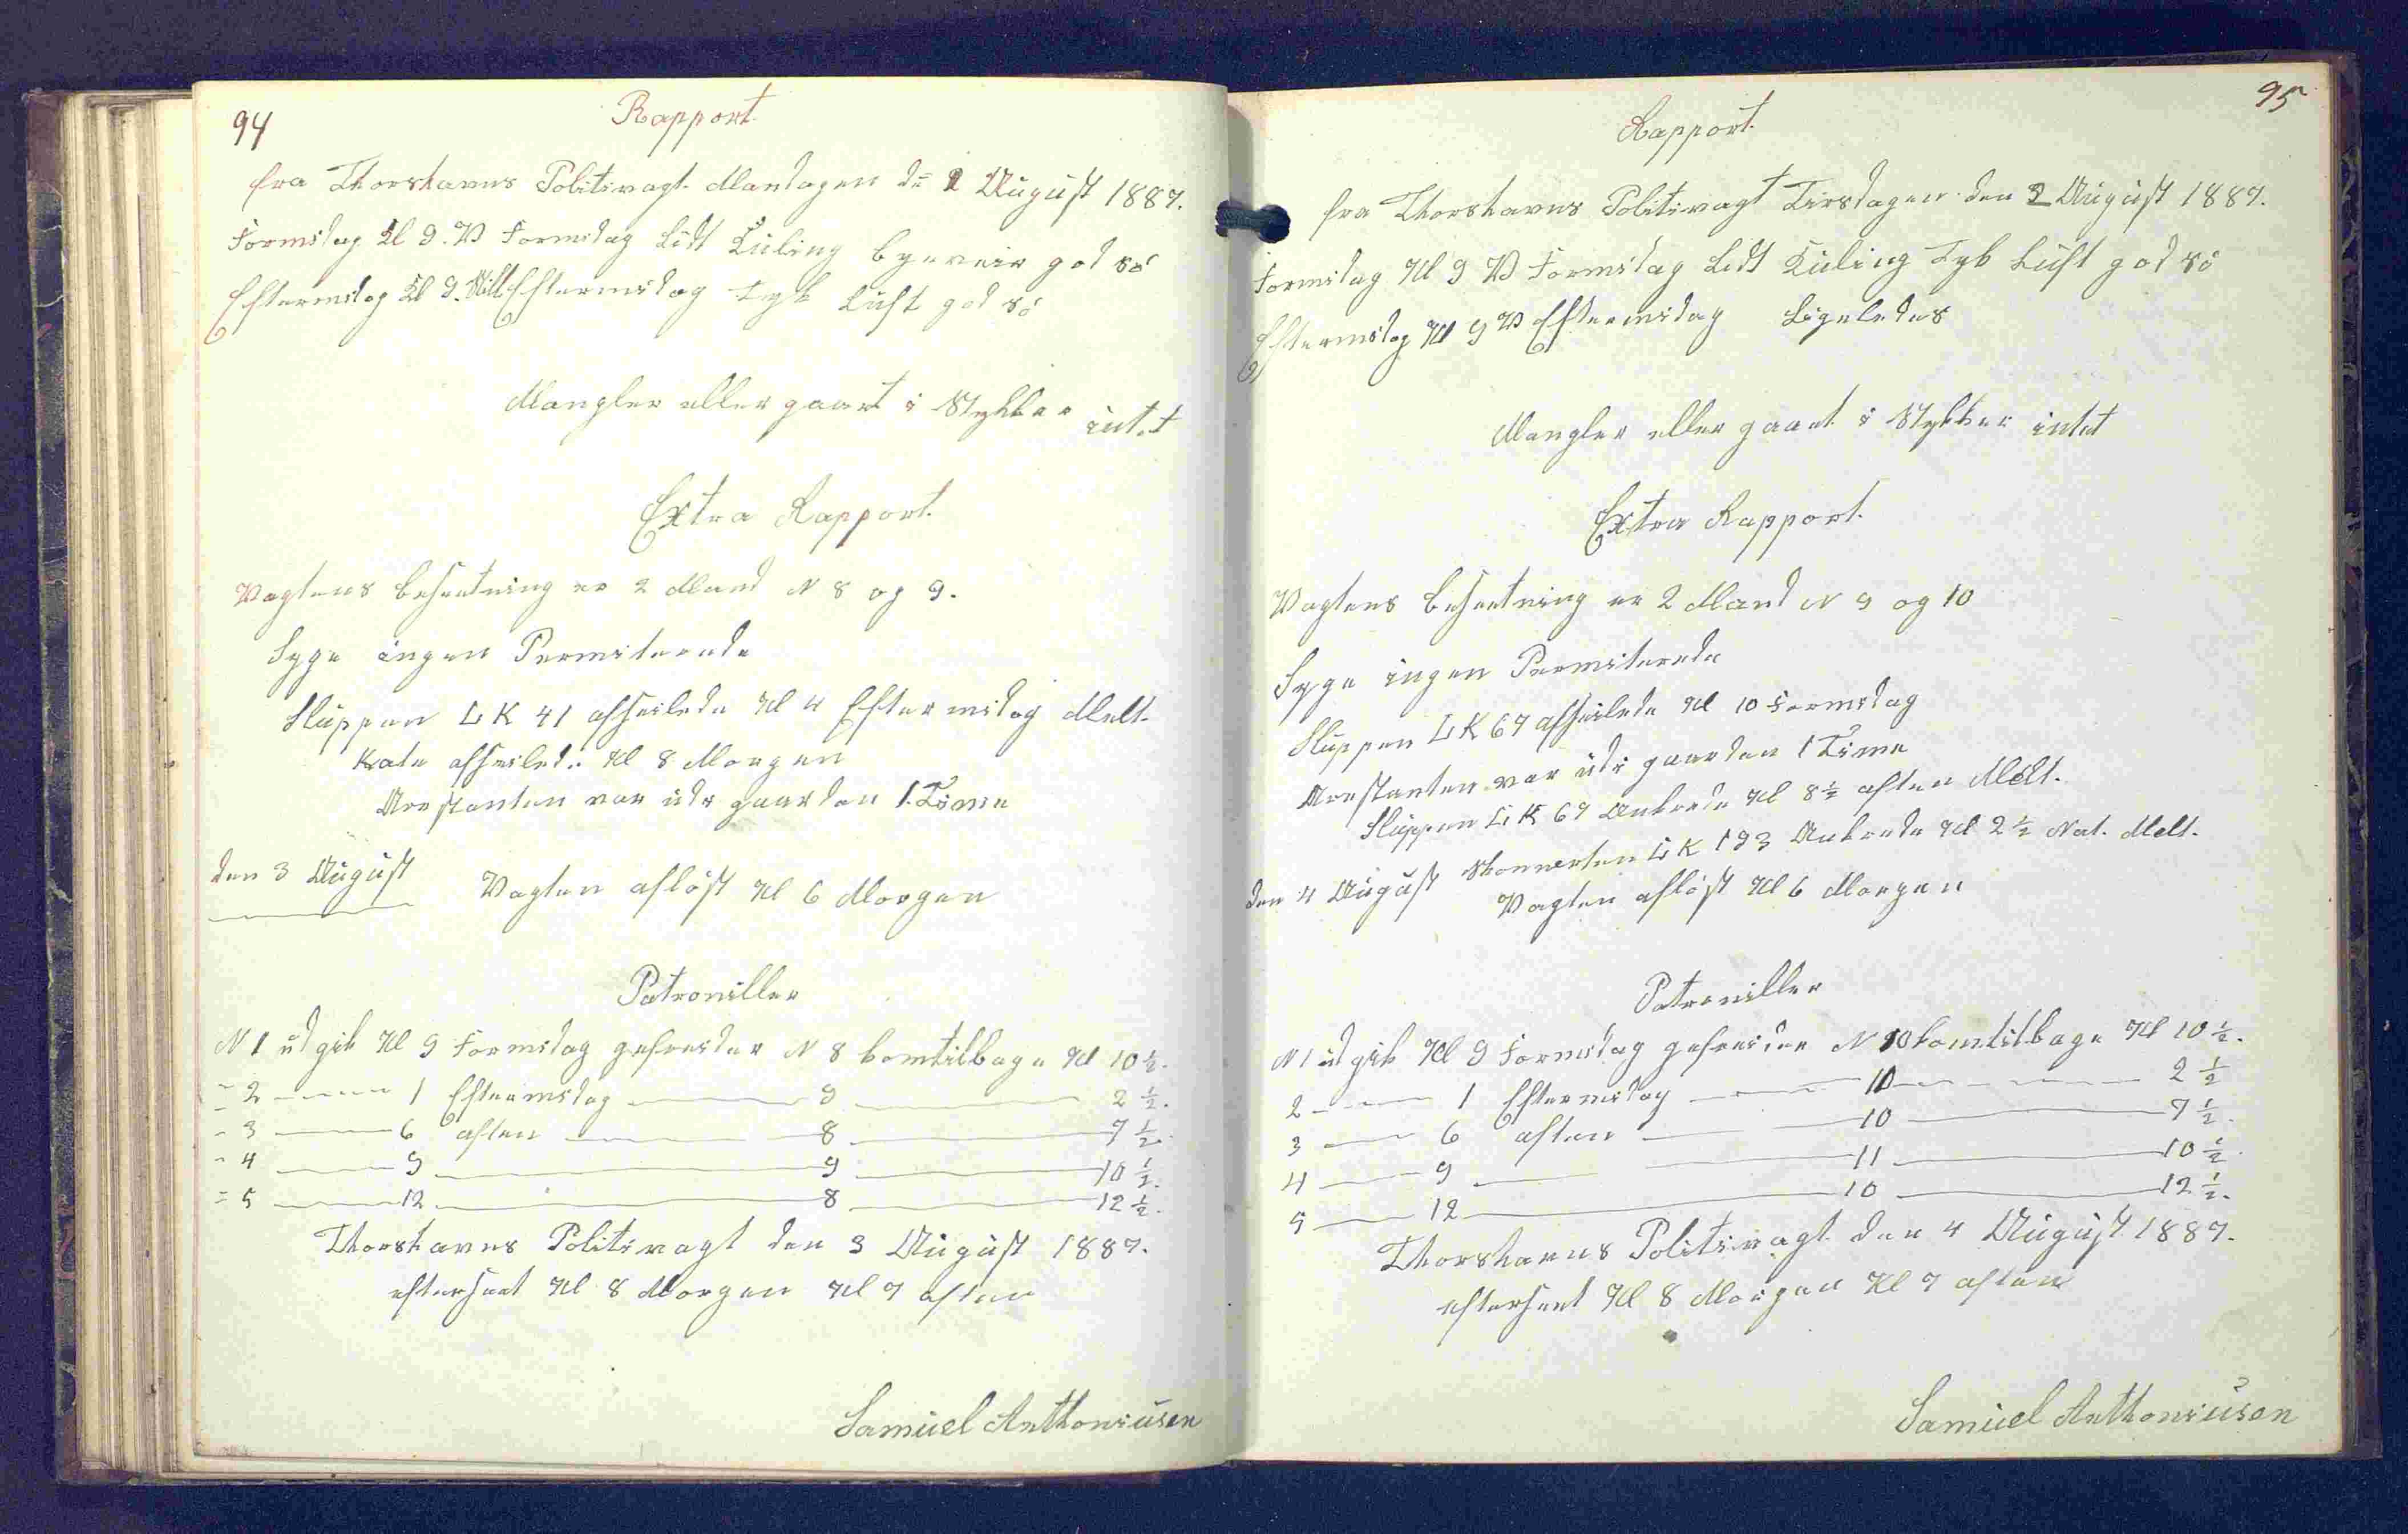 94
Rapport.
fra Thorshavns Politivagt. Mandagen dn 2 August 1887.
Formidag Kl 9. V Formidag Lidt Kuling byeveir god sö
Eftermidag Kl 9. Still Eftermidag Tyk Luft god sö
Mangler eller gaaet i Stykker intet
Extra Rapport.
Vagtens besætning er 2 Mand N 8 og 9.
Syge ingen Permiterede
Sluppen LK 41 afseilede Kl 4 Eftermidag Melt.
Kate afseilede Kl 8 Morgen
Arestanten var udi gaarden 1. Time
den 3 August Vagten aflöst Kl 6 Morgen
Patroniller
N 1 udgik Kl 9 Formidag gefreider N 8 komtilbage Kl 10 ½.
- 2 — 1 Eftermidag — 9 — 2 ½.
- 3 — 6 aften — 8 — 7 ½.
- 4 — 9 — 9 — 10 ½.
- 5 — 12 — 8 — 12 ½.
Thorshavns Politivagt den 3 August 1887.
efterseet Kl 8 Morgen Kl 7 aften
Samuel Anthoniusen
95
Rapport.
fra Thorshavns Politivagt Tirsdagen den 3 August 1887.
Formidag Kl 9 V Formidag Lidt Kuling Tyk Luft god sö
Eftermidag Kl 9 V Eftermidag Ligeledes
Mangler eller gaaet i Stykker intet
Extra Rapport.
Vagtens besætning er 2 Mand N 9 og 10
Syge ingen Permiterede
Sluppen LK 67 afseilede Kl 10 Formidag
Arestanten var udi gaarden 1 Time
Sluppen LK 67 Ankrede Kl 8 ½ aften Melt.
den 4 August Skonnerten LK 193 Ankrede Kl 2 ½ Nat. Melt.
Vagten aflöst Kl 6 Morgen
Patroniller
N 1 udgik Kl 9 Formidag gefreider N 10 komtilbage Kl 10 ½.
2 — 1 Eftermidag — 10 — 2 ½
3 — 6 aften — 10 — 7 ½
4 — 9 — 11 — 10 ½
5 — 12 — 10 — 12 ½.
Thorshavns Politivagt den 4 August 1887.
efterseet Kl 8 Morgen Kl 7 aften
Samuel Anthoniusen